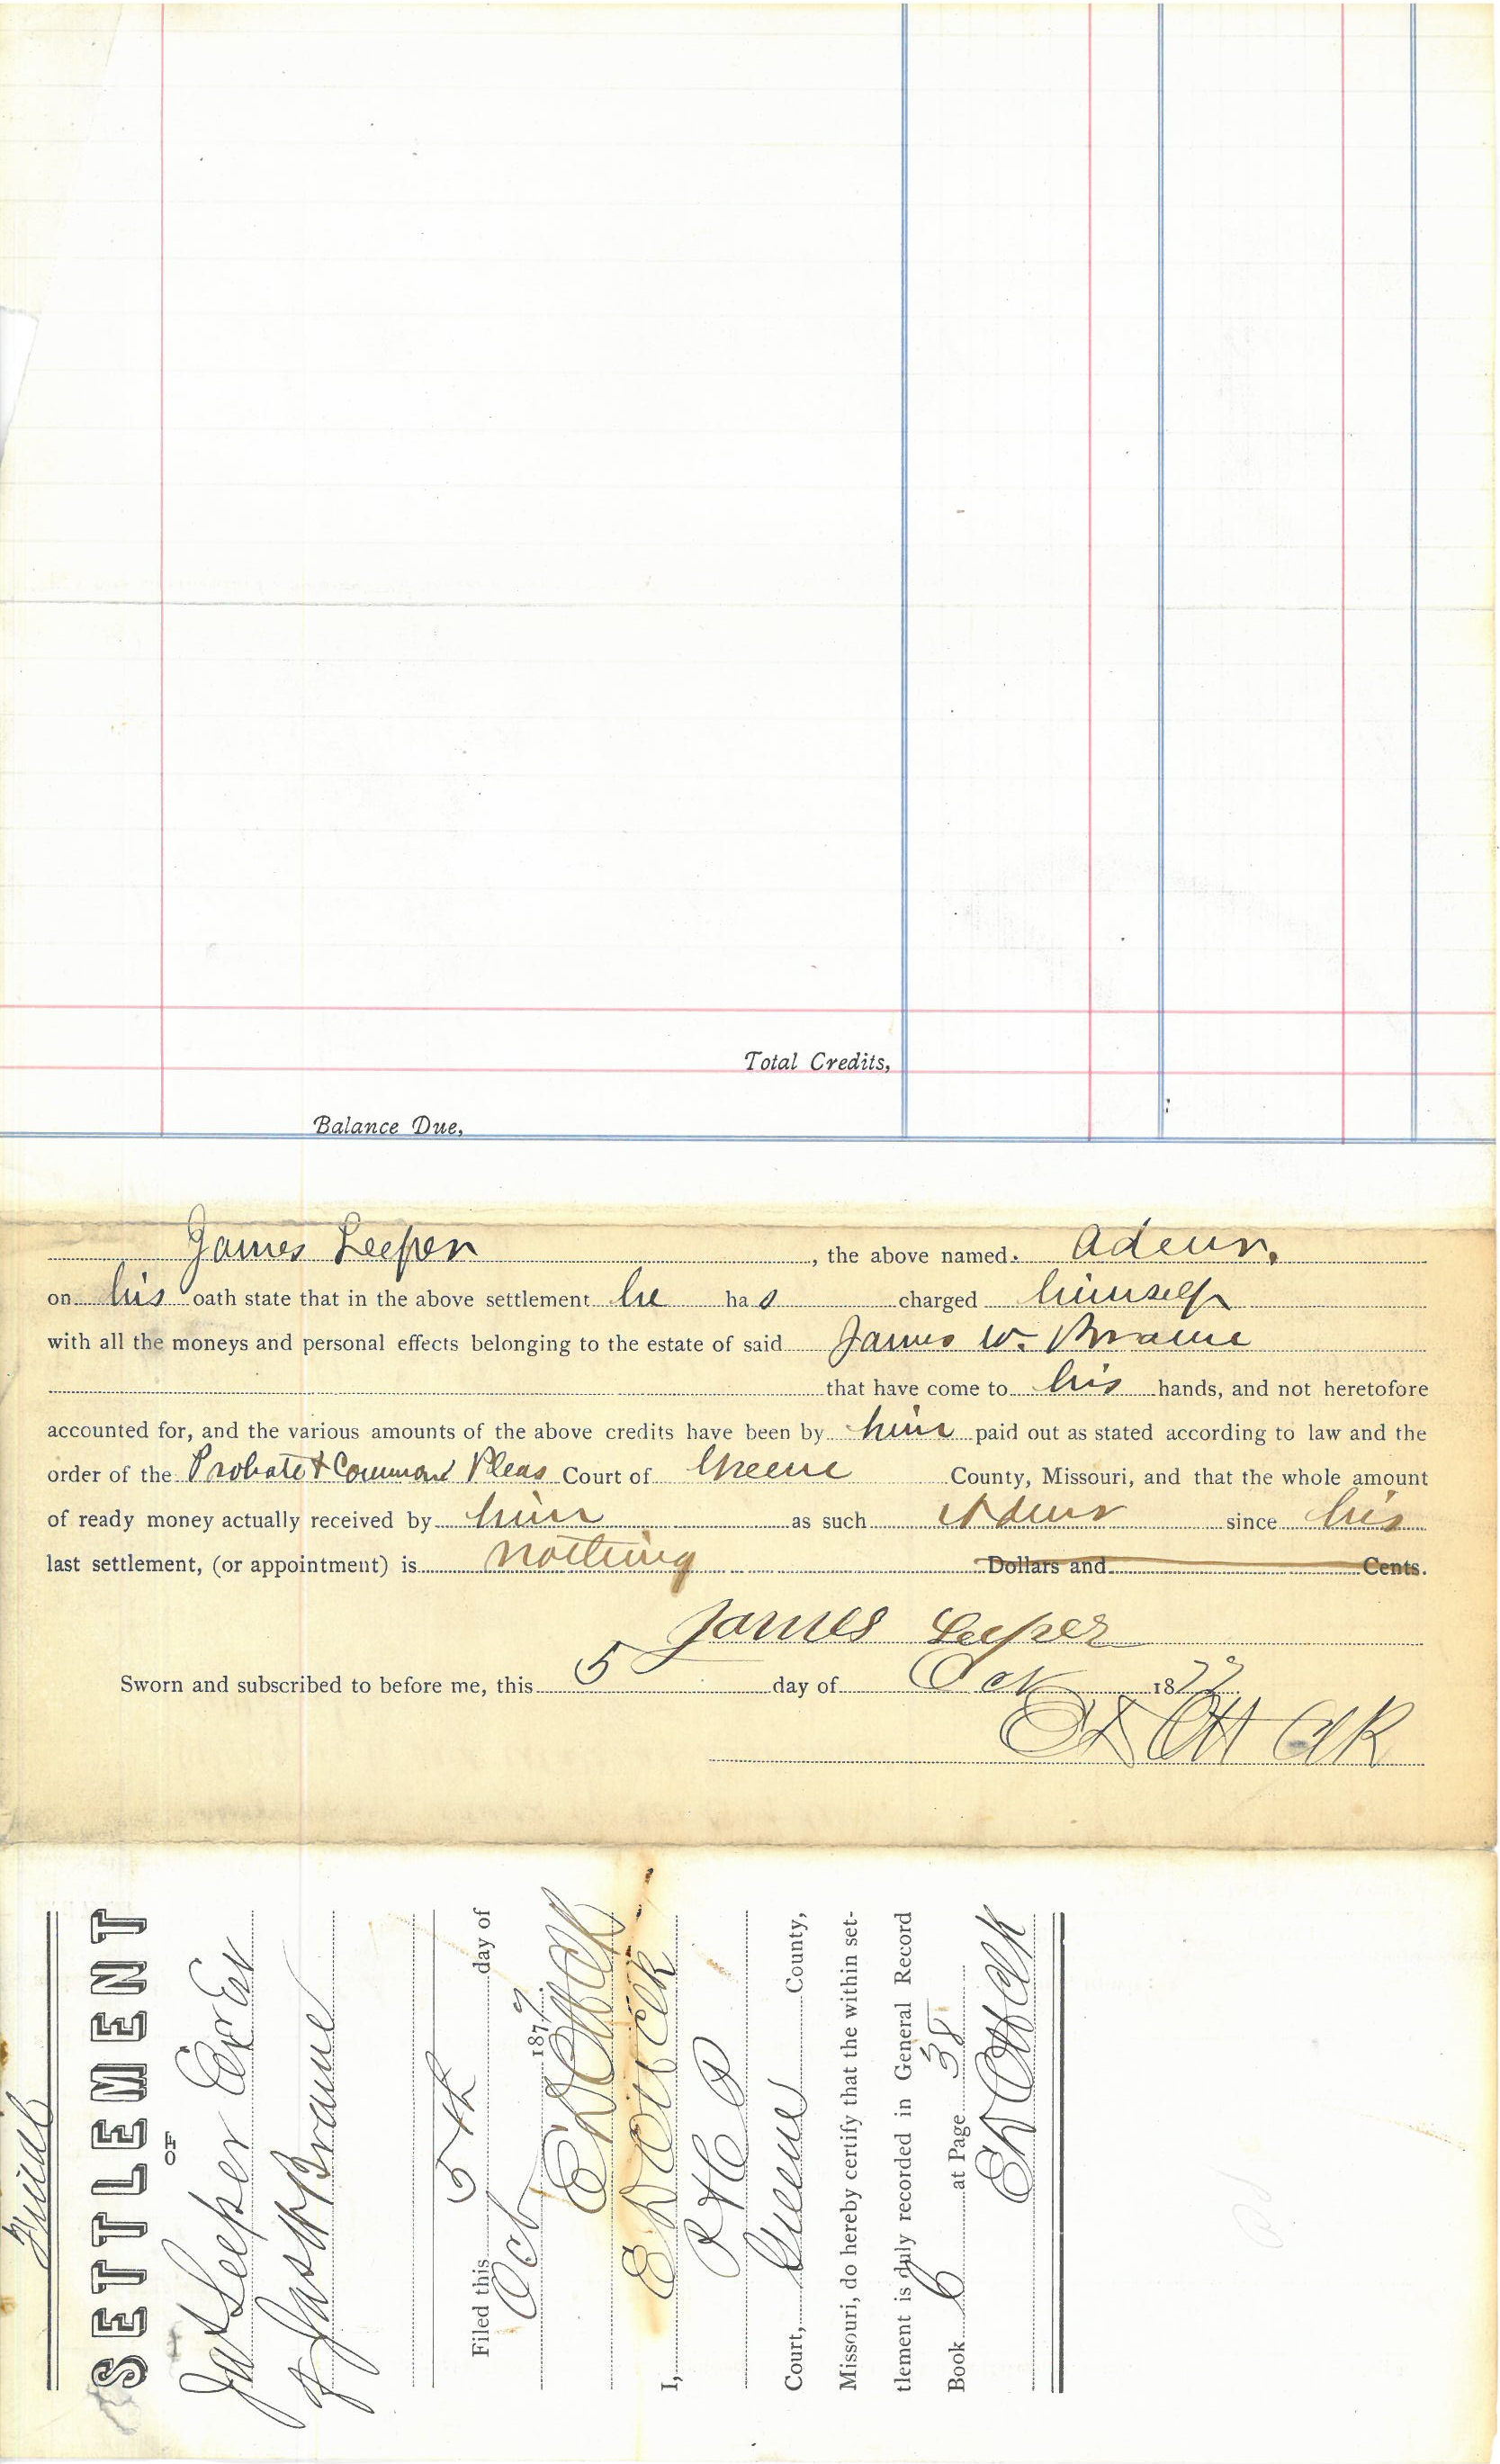 Total Credits,
Balance Due,
James Leeper, the above named Admr.
on his oath state that in the above settlement he has charged himself
with all the moneys and personal effects belonging to the estate of said James W. Brame
that have come to his hands, and not heretofore
accounted for, and the various amounts of the above credits have been by him paid out as stated according to law and the
order of the Probate & Common Pleas Court of Greene County, Missouri, and that the whole amount
of ready money actually received by him as such Admr since his
last settlement, (or appointment) is nothing Dollars and Cents.
James Leeper
Sworn and subscribed to before me, this 5 day of Oct 1877
E D Ott Clk
Final
SETTLEMENT
OF
Jas Leeper
of Jas W Brame
Filed this 5th day of
Oct 1877.
E D Ott Clk
I, E D Ott Clk
P & C P
Court, Greene County,
Missouri, do hereby certify that the within set-
tlement is duly recorded in General Record
Book 6 at Page 38
E D Ott Clk